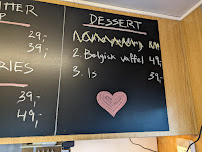 MER
29,-
39,-
RIES
39,-
49,-
DESSERT
2. Belgisk vaffel 49,-
3. Is 39,-